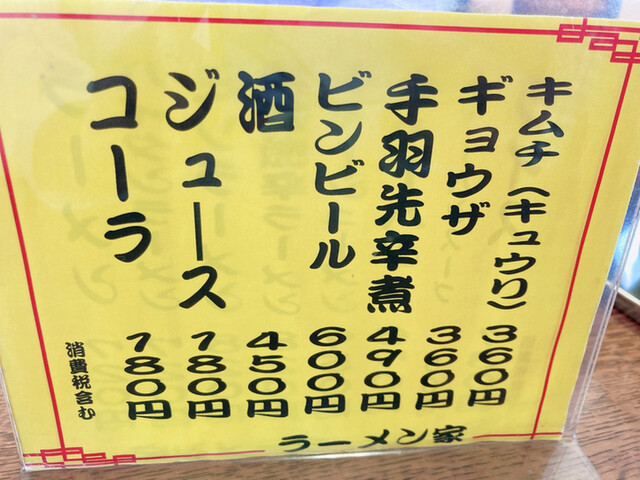 キムチ（キュウリ）360円
ギョウザ 360円
手羽先辛煮 490円
ビンビール 600円
酒 450円
ジュース 180円
コーラ 180円
消費税含む
ラーメン家